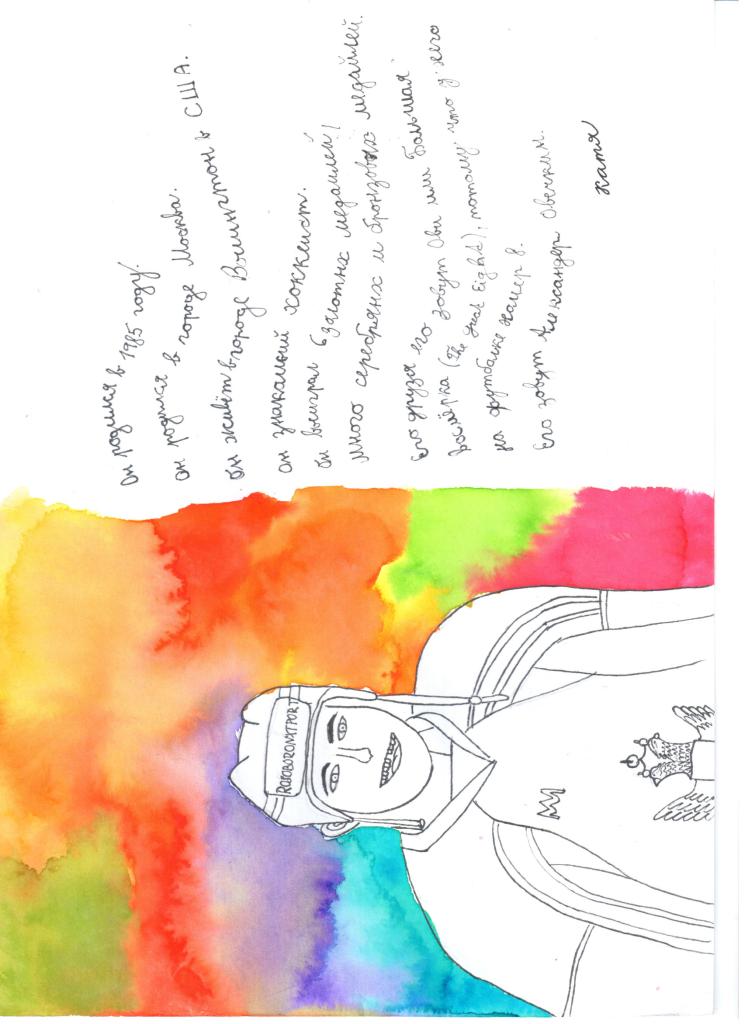 Он родился в 1985 году.
он родился в городе Москва.
Он живёт в городе Вашингтон в США.
он знакамый хоккеист.
он выиграл 6 залотных медайлей!
Много серебряных и бронзовых медайлей.
Его друзя его зовут Ови или Большая
васмёрка (The Great Eight), потому, что у него
на футболке намер 8.
Его зовут Александер Овечкин.
Катя
ROSOBORONEXPORT